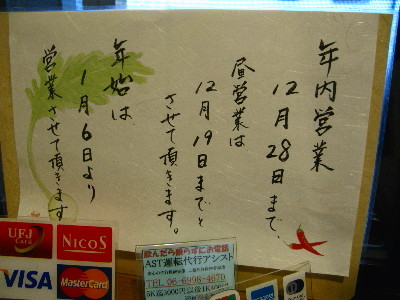 年内営業
12月28日まで、
昼営業は
12月19日までと
させて頂きます。
年始は、
1月6日より
営業させて頂きます
UFJ
Card
NICOS
VISA
MasterCard
飲んだら乗らずにお電話
AST運転代行アシスト
TEL 06-6998-4670